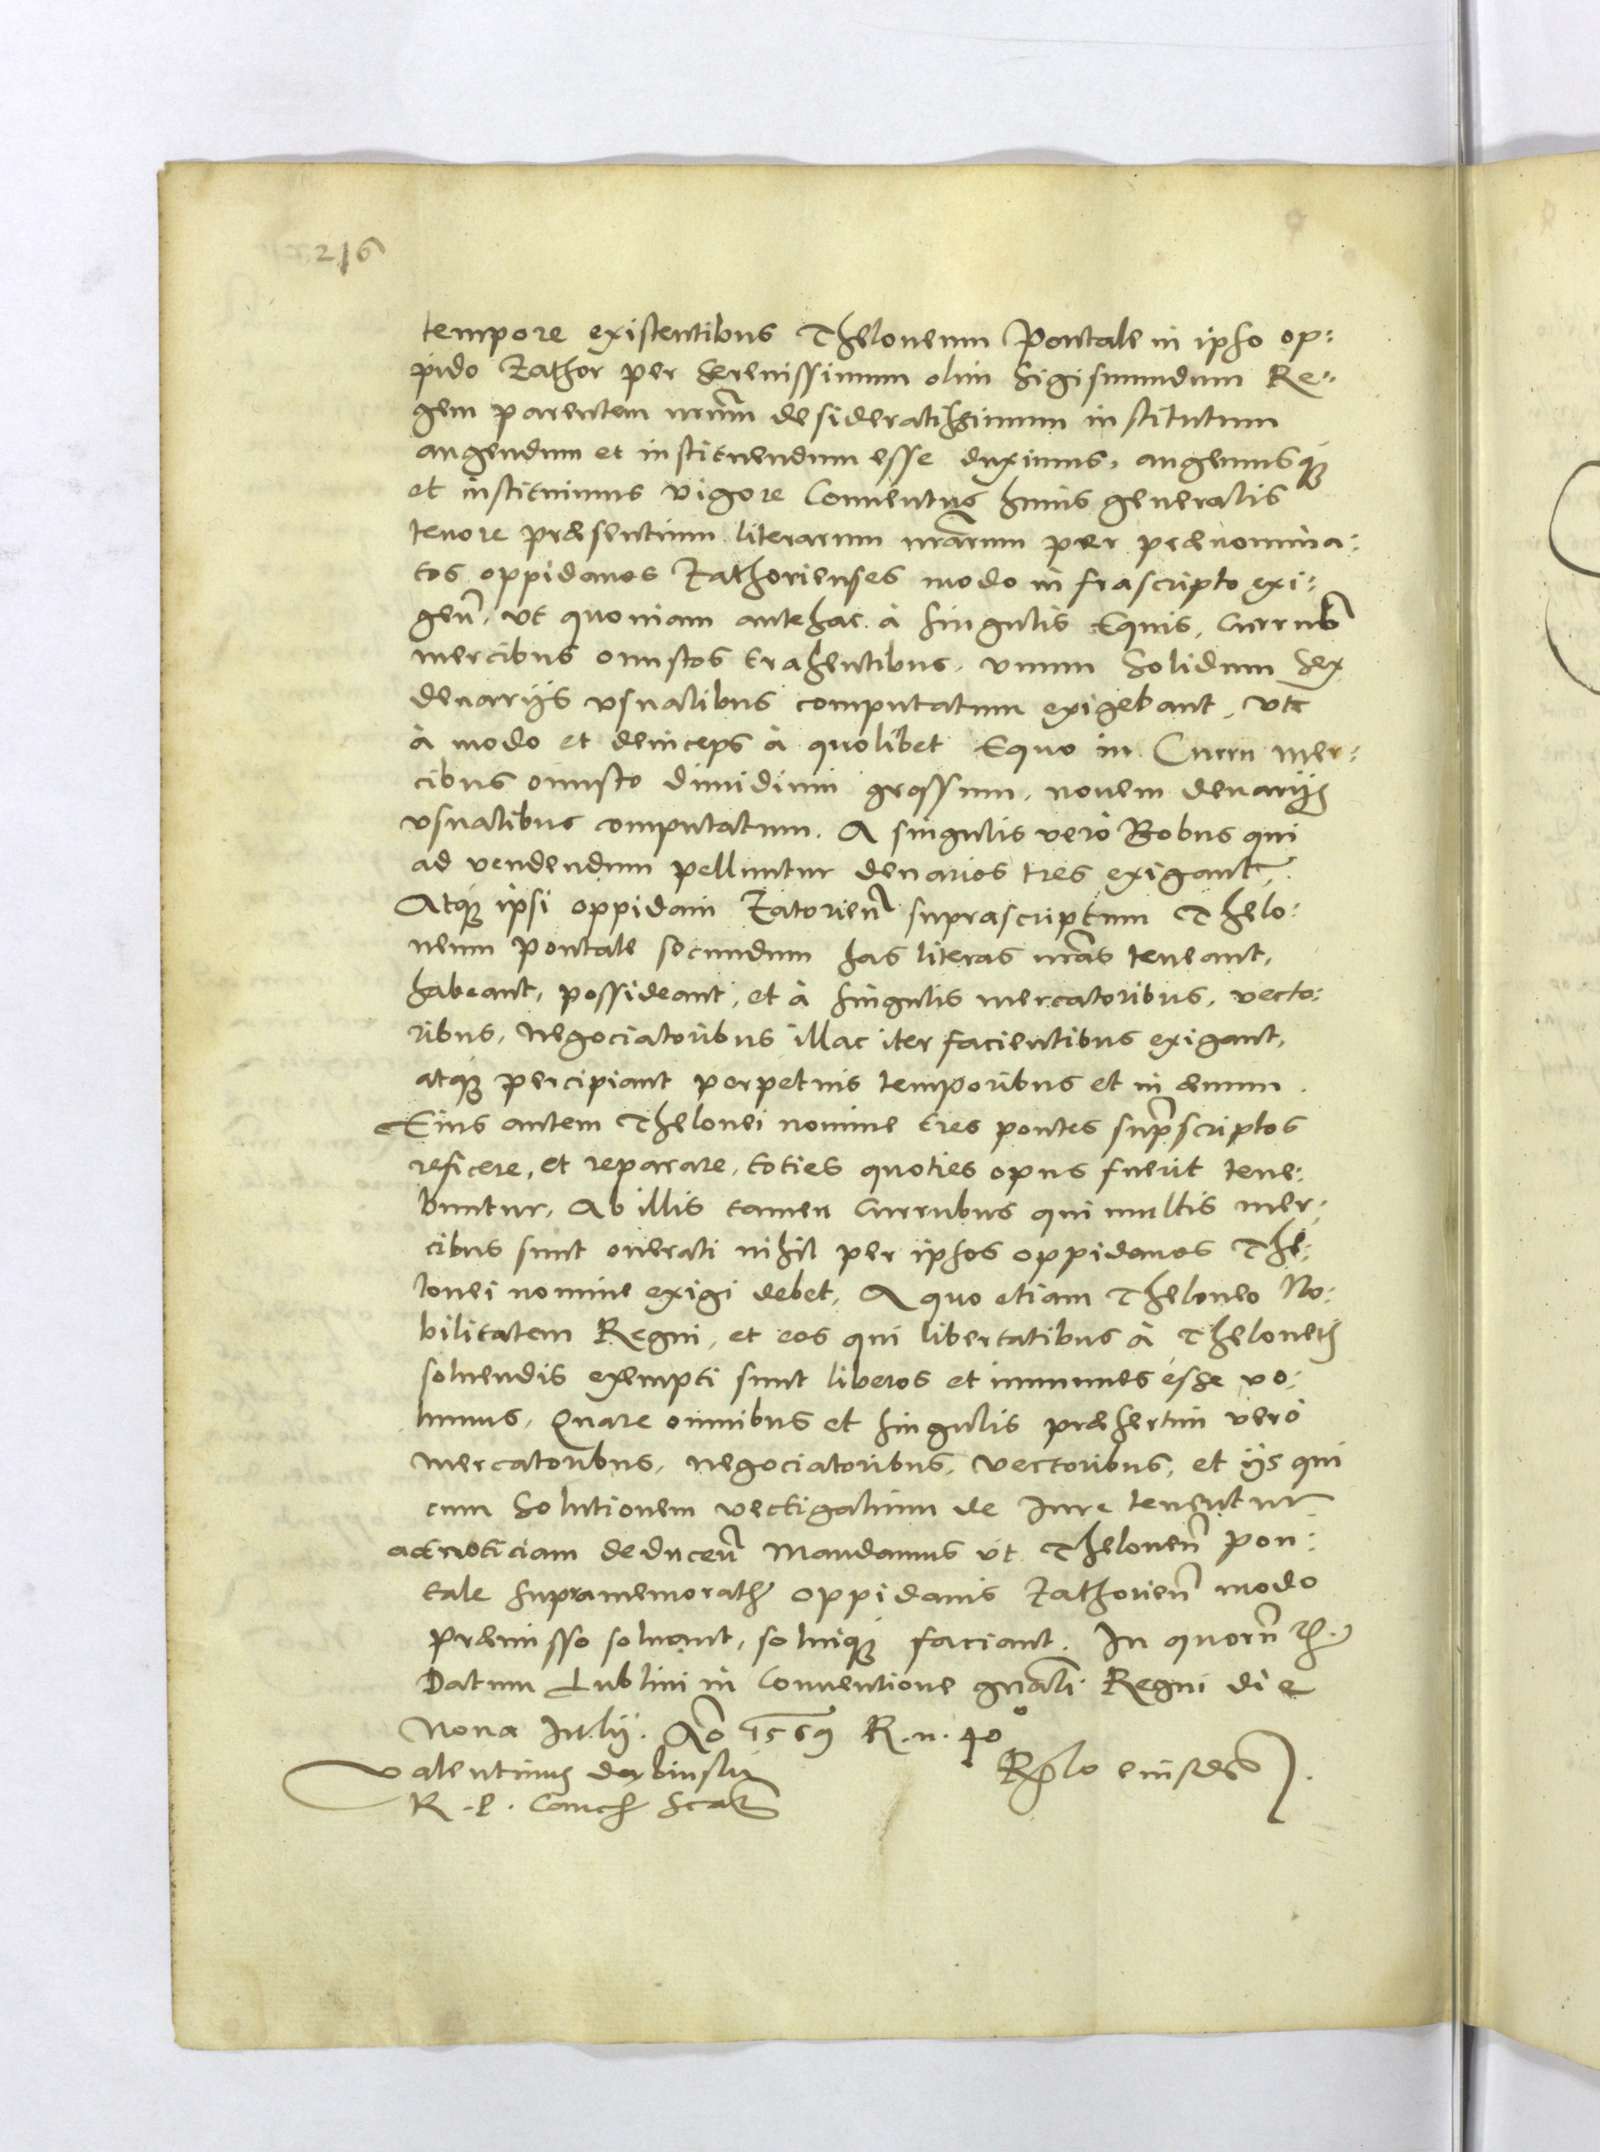 216
tempore existentibus Theloneum Pontale in ipso op:
pido Zathor per Serenissimum olim Sigismundum Re:
gem parentem nrum desideratissimum institutum
augendum et instituendum esse duximus, augemusq;
et instituimus vigore Conuentus huius generalis
tenore præsentium literarum nrarum per prænomina:
tos oppidanos Zathorienses modo infrascripto exi:
gen, vt quoniam antehac à singulis Equis, Currub
mercibus onustos trahentibus, vnum Solidum sex
denarijs vsualibus computatum exigebant, vtc
à modo et deinceps à quolibet Equo in Curru mer:
cibus onusto dimidium grossum, nouem denarijs
vsualibus computatum. A singulis verò Bobus qui
ad vendendum pelluntur denarios tres exigant,
Atq; ipsi oppidani Zatorien suprascriptum Thelo:
neum pontale secundum has literas nras teneant,
habeant, possideant, et à singulis mercatoribus, vecto:
ribus, negociatoribus illac iter facientibus exigant,
atq; percipiant perpetuis temporibus et in æuum.
Eius autem Thelonei nomine tres pontes suprscriptos
reficere, et reparare, toties quoties opus fuerit tene:
buntur, Ab illis tamen Curribus qui multis mer:
cibus sunt onerati nihil per ipsos oppidanos The:
lonei nomine exigi debet, A quo etiam Theloneo No:
bilitatem Regni, et eos qui libertatibus à Theloneis
soluendis exempti sunt liberos et immunes esse vo:
lumus, Quare omnibus et singulis præsertim verò
mercatoribus, negociatoribus, vectoribus, et ijs qui
cum Solutionem vectigalium de Iure tenentur
ad noticiam deducen Mandamus vt Thelonen pon:
tale supramemoratis oppidanis Zathorien modo
præmisso soluant, soluiq; faciant. In quorum rei
Datum Lublini in Conuentione gnali Regni die
Nona Iulij. Ao 1569 R. n. 40°
Valentinus Dembinski
R. P. Canc. scr
Rlo eiusdem